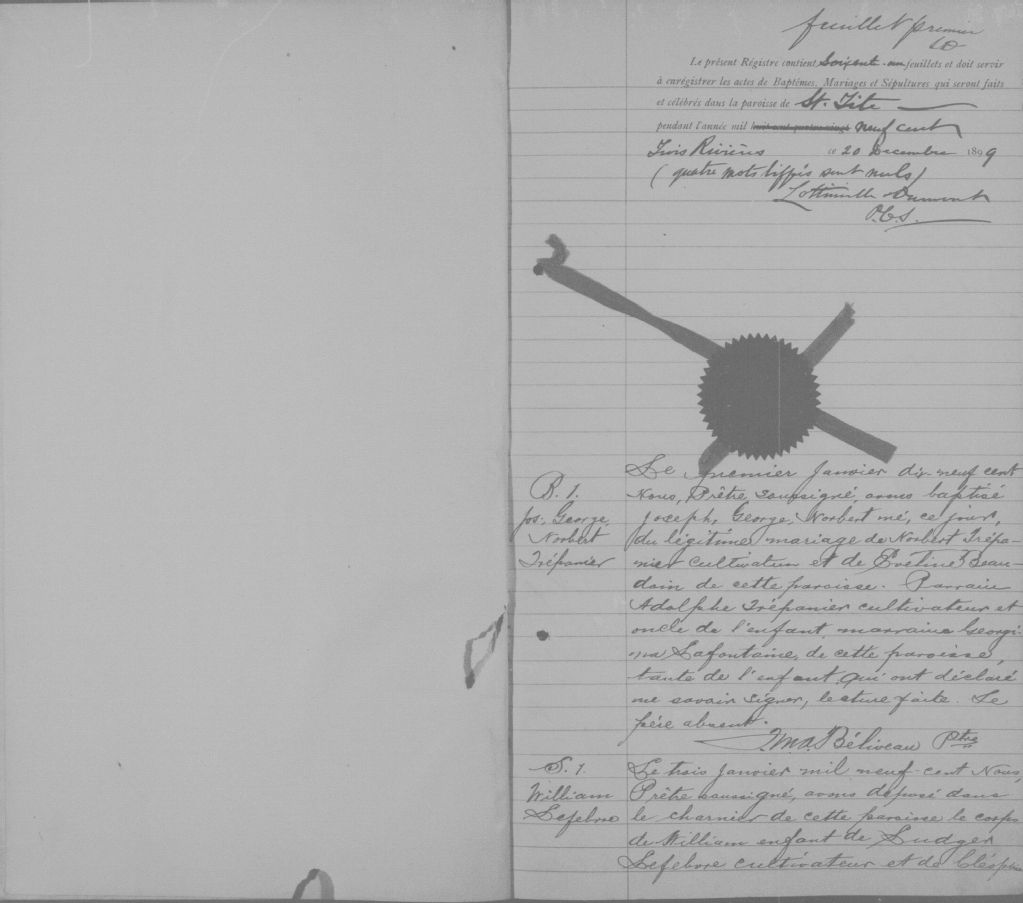 feuillet premier
Le présent Régistre contient Soixante-un feuillets et doit servir
à enrégistrer les actes de Baptêmes, Mariages et Sépultures qui seront faits
et célébrés dans la paroisse de St. Tite
pendant l'année mil huit cent quatre-vingt neuf cent
Trois Rivières ce 20 Decembre 1899
(quatre mots biffés sont nuls)
Lottinville Dumont
P.C.S.
Le premier Janvier dix-neuf cent
B. 1. Nous, Prêtre soussigné, avons baptisé
Jos. George, Joseph, George, Norbert né, ce jour,
Norbert du légitime mariage de Norbert Trépa-
Trépanier nier cultivateur et de Eveline Beau-
doin de cette paroisse. Parrain
Adolphe Trépanier cultivateur et
oncle de l'enfant, marraine Georgi-
na Lafontaine, de cette paroisse,
tante de l'enfant qui ont déclaré
ne savoir signer, lecture faite. Le
père absent.
Béliveau Ptre
S. 1. Le trois Janvier mil neuf-cent Nous,
William Prêtre soussigné, avons déposé dans
Lefebvre le charnier de cette paroisse le corps
de William enfant de Ludger
Lefebvre cultivateur et de Cléophe